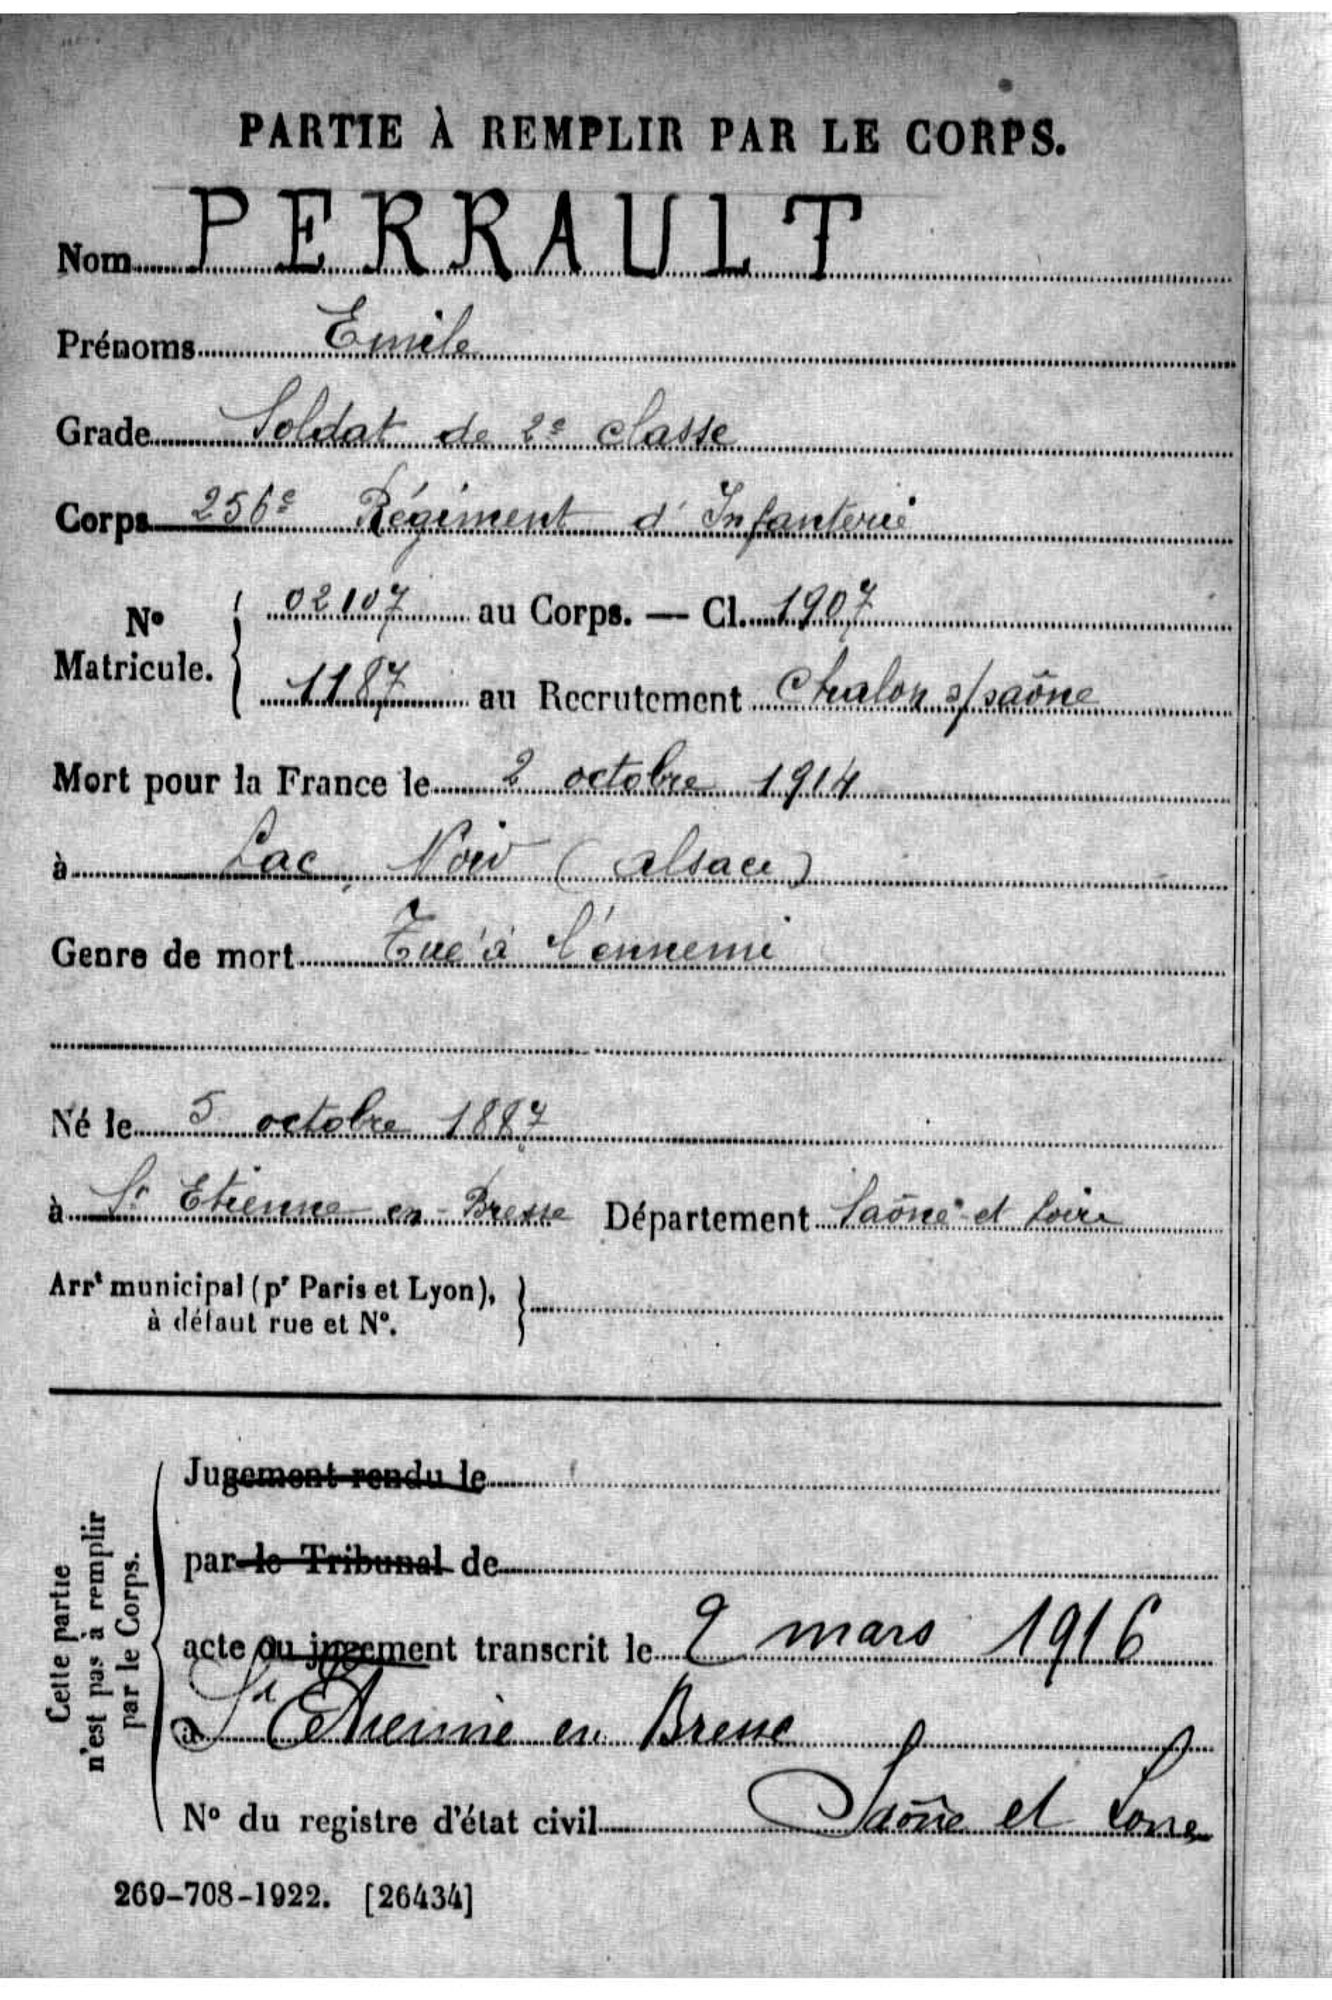 PARTIE À REMPLIR PAR LE CORPS.
Nom PERRAULT
Prénoms Emile
Grade Soldat de 2e classe
Corps 256e Régiment d'Infanterie
No Matricule. { 02107 au Corps. — Cl. 1907
1187 au Recrutement Chalon s/saône
Mort pour la France le 2 octobre 1914
à Lac Noir (alsace)
Genre de mort Tué à l'ennemi
Né le 5 octobre 1887
à St Etienne en-Bresse Département Saône et Loire
Arrt municipal (pr Paris et Lyon),
à défaut rue et No.
Cette partie
n'est pas à remplir
par le Corps.
Jugement rendu le
par le Tribunal de
acte ou jugement transcrit le 2 mars 1916
à St Etienne en Bresse
No du registre d'état civil Saône et Loire
269-708-1922. [26434]